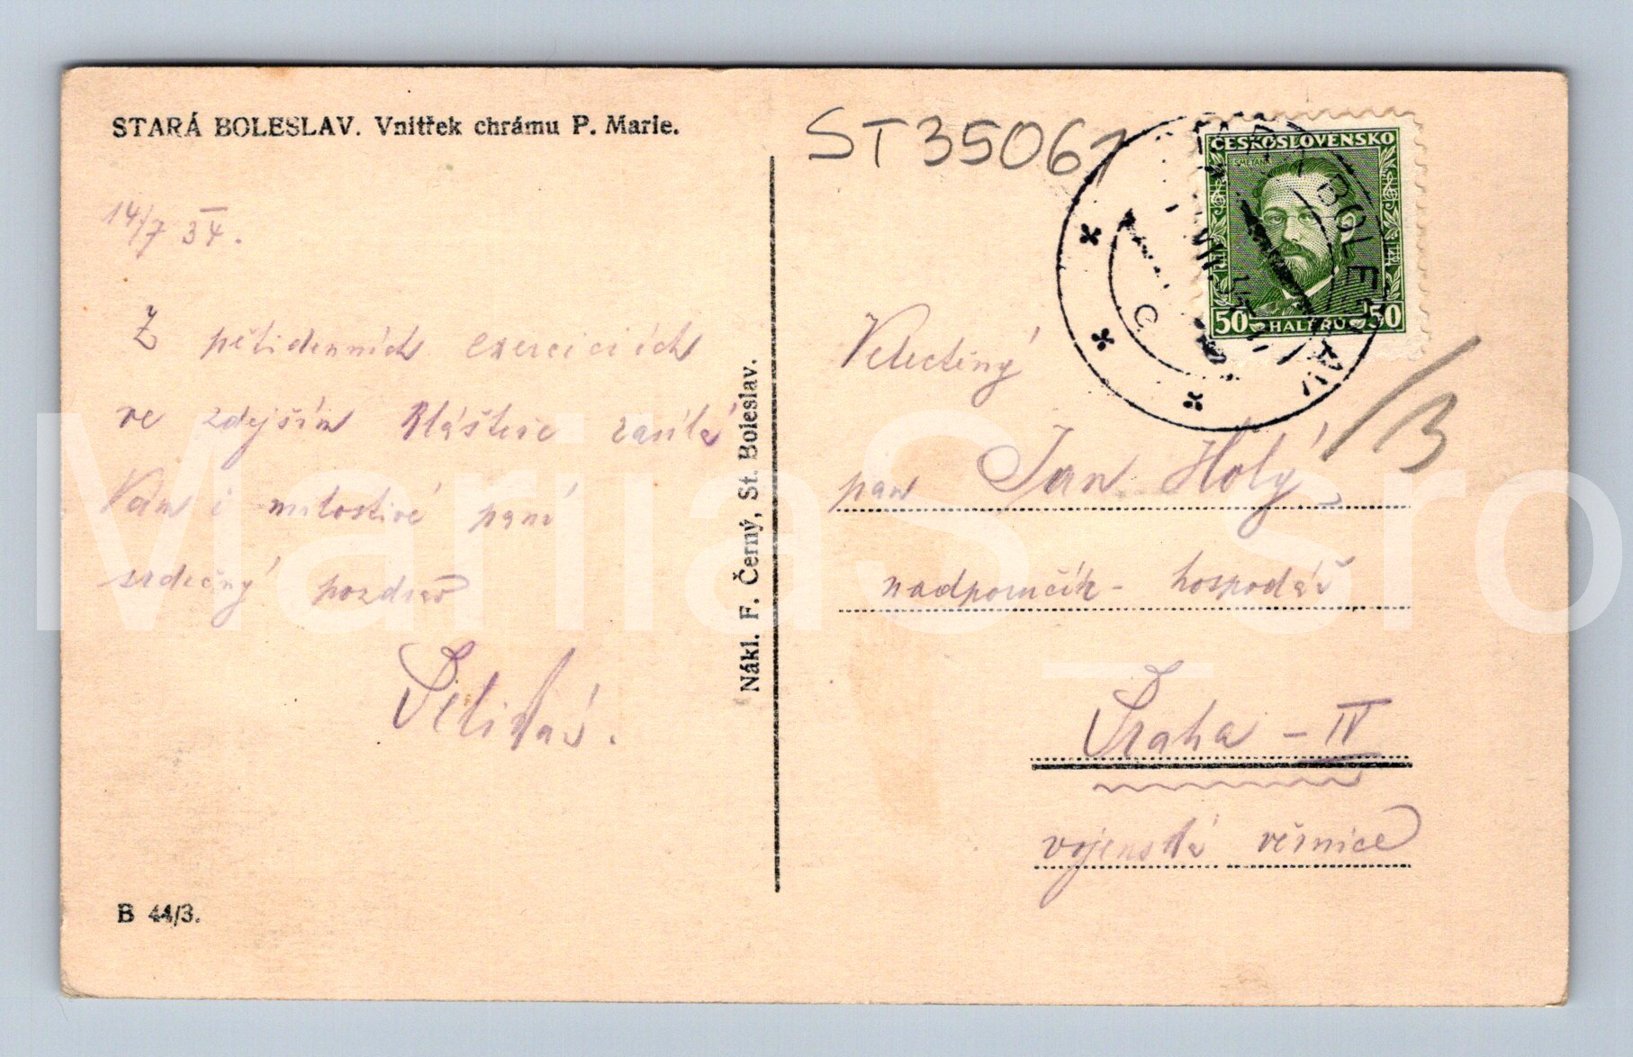 STARÁ BOLESLAV. Vnitřek chrámu P. Marie.
14/7 34.
Z pětidenních exerciciích
ve zdejším klášteře zasílá
Vám i milostivé paní
srdečný pozdrav
B 44/3.
Nákl. F. Černý, St. Boleslav.
ST35061
ČESKOSLOVENSKO
SMETANA
50 HALÉŘŮ 50
STARÁ BOLESLAV
/3
Velectěný
pan Jan Holý
nadporučík - hospodář
Praha - IV
vojenská věznice
MariiaS_sro